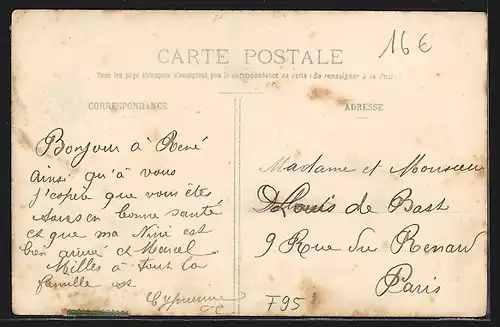 16€
CARTE POSTALE
Tous les pays étrangers n'acceptent pas la correspondance au recto (Se renseigner à la Poste)
CORRESPONDANCE
ADRESSE
Bonjour à René
ainsi qu'à vous
j'espère que vous êtes
tous en bonne santé
et que ma Nini est
bien arrivé et Marcel
Milles à tout la
famille
Cyprienne
Madame et Monsieur
Louis de Bast
9 Rue du Renard
Paris
F95